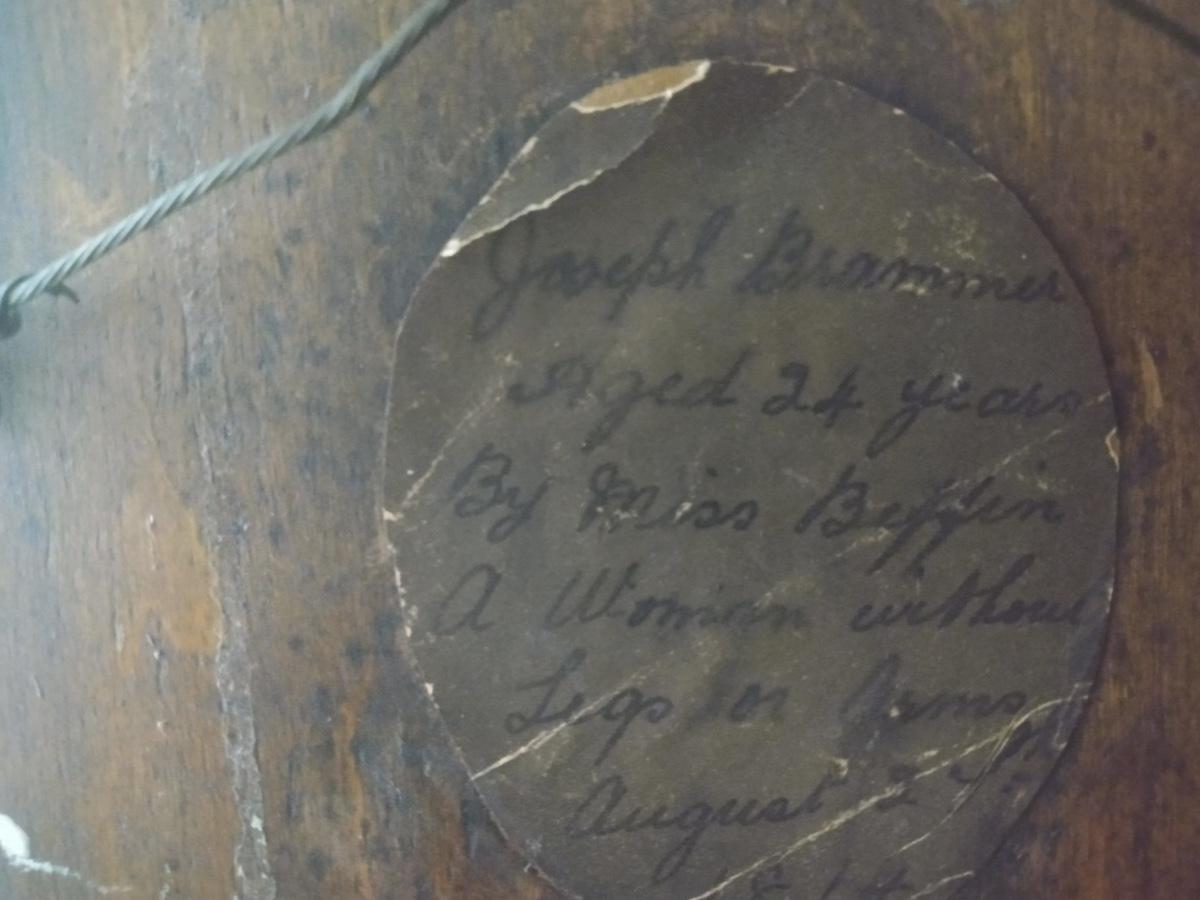 Joseph Brammer
Aged 24 years
By Miss Beffin
A Woman without
Legs or Arms
August 2